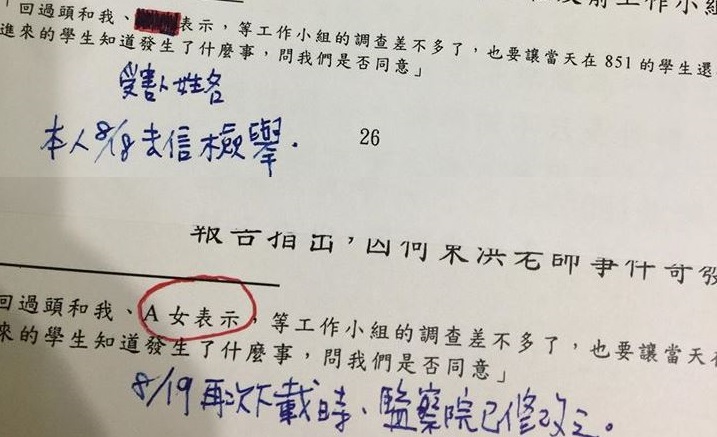 前工作小組
「回過頭和我、表示，等工作小組的調查差不多了，也要讓當天在 851 的學生還
進來的學生知道發生了什麼事，問我們是否同意」
受害人姓名
本人8/18去信檢舉.
26
報告指出，因何東洪老師事件可發
回過頭和我、A 女表示，等工作小組的調查差不多了，也要讓當天在
來的學生知道發生了什麼事，問我們是否同意」
8/19再次下載時、監察院已修改之。